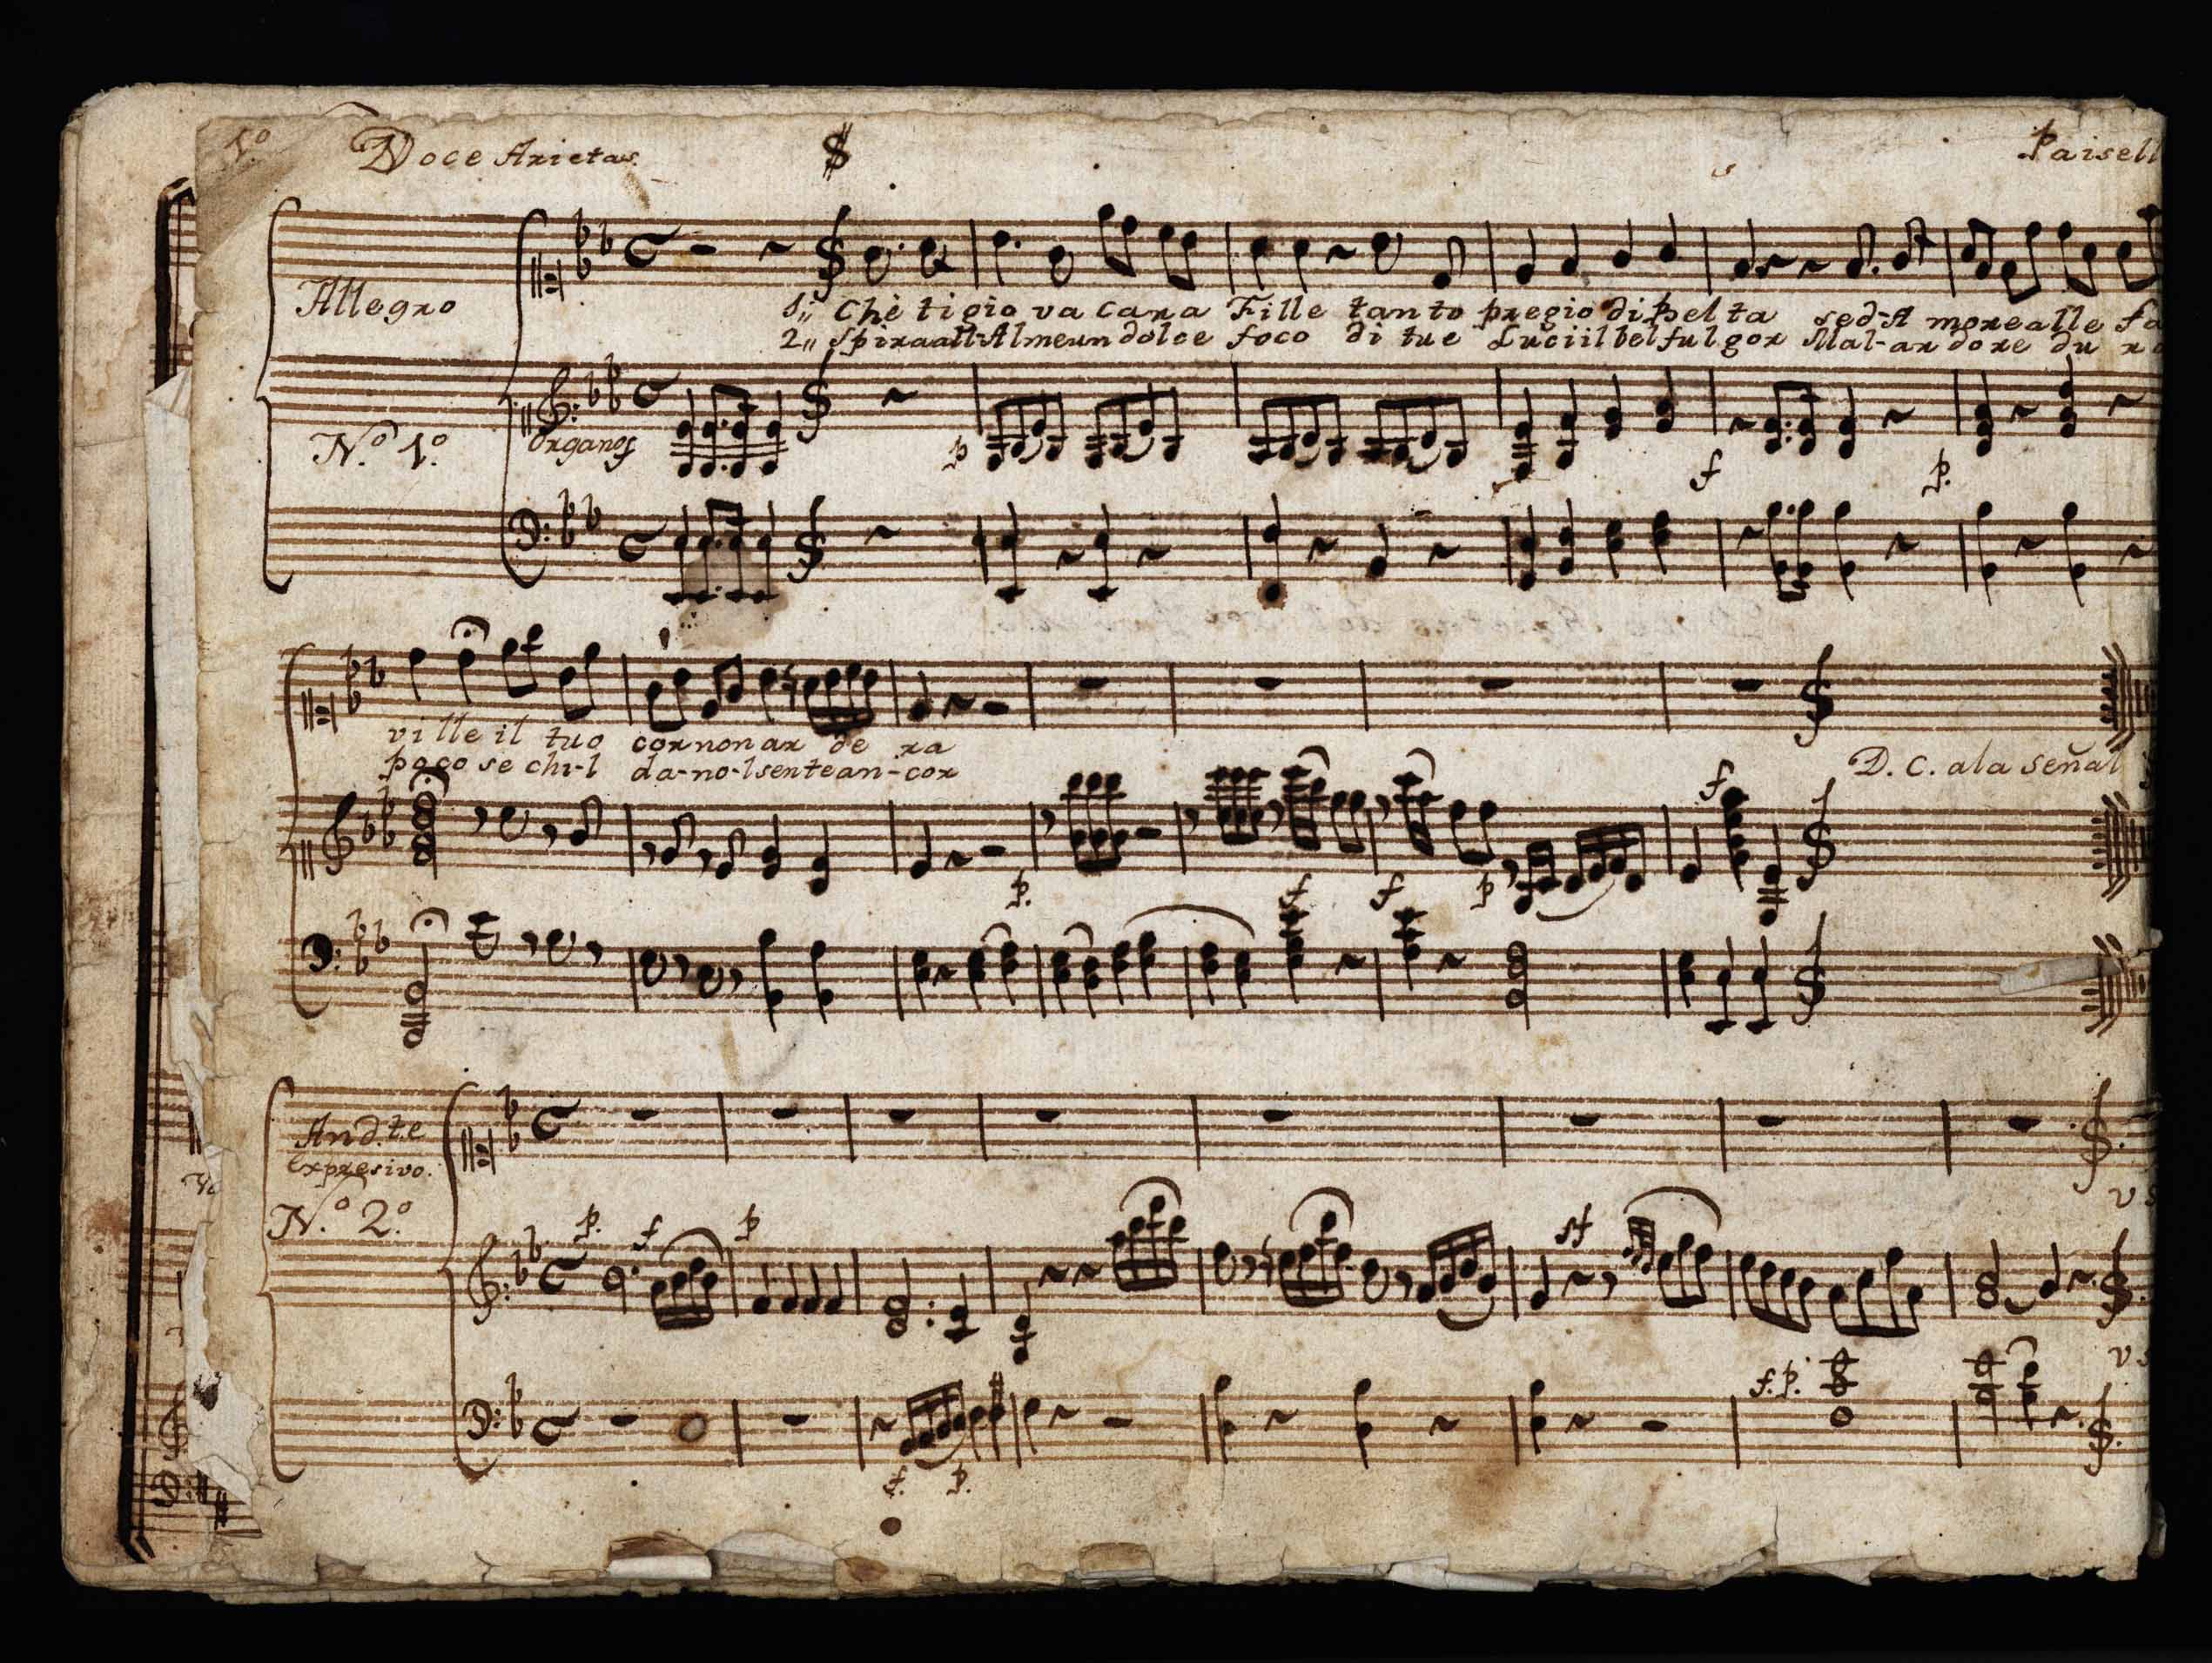 1º Doce Arietas. Paisell
Allegro
1,, Chè ti gio va cara Fille tanto pregio di bel ta sed-A more alle fa
2,, Spira all-Almeun dolce foco di tue Luci il bel fulgor Mal-ardore du ro
organo f
Nº 1º
p f p.
ville il tuo cor non ar de ra
poco se chi-l da-no-l sente an-cor
D. C. ala señal
f
p. f f p
And.te
Expresivo.
Nº 2º
p. f p sf
f. p.
f. p.